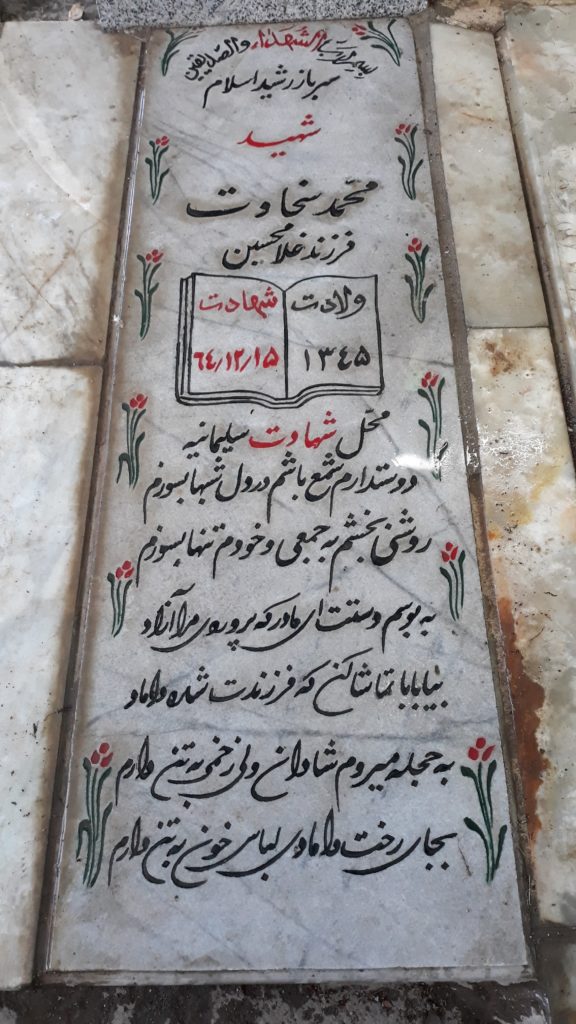 بسم رب الشهداء والصدیقین
سرباز رشید اسلام
شهید
محمد سخاوت
فرزند غلامحسین
ولادت
۱۳۴۵
شهادت
۶۴/۱۲/۱۵
محل شهادت سلیمانیه
دوستدارم شمع باشم در دل شبها بسوزم
روشنی بخشم به جمعی و خودم تنها بسوزم
به بوسم دستت ای مادر که پروردی مرا آزاد
بیا بابا تماشا کن که فرزندت شده داماد
به حجله میروم شادان ولی زخمی به تن دارم
بجای رخت دامادی لباس خون به تن دارم